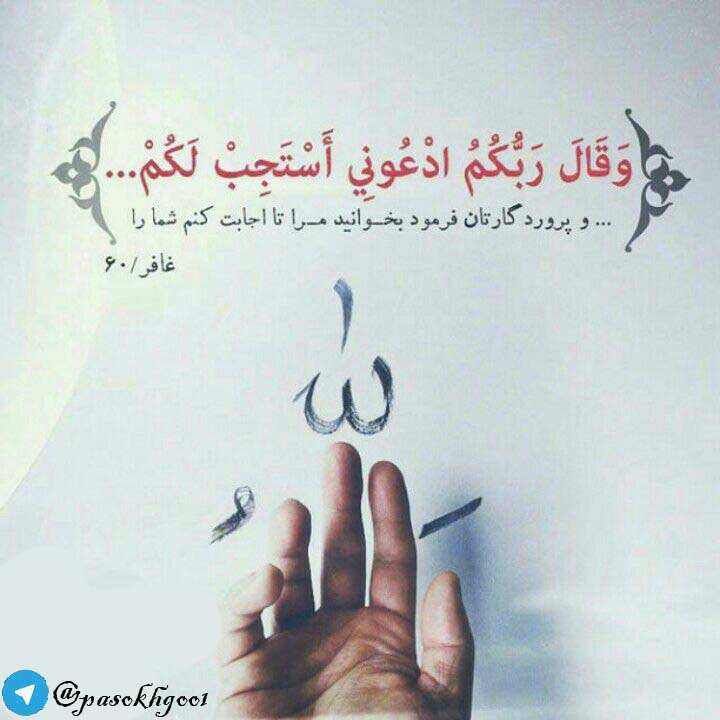 وَقَالَ رَبُّكُمُ ادْعُونِي أَسْتَجِبْ لَكُمْ...
... و پروردگارتان فرمود بخـوانید مـرا تا اجابت کنم شما را
غافر/۶۰
الله
@pasokhgoo1